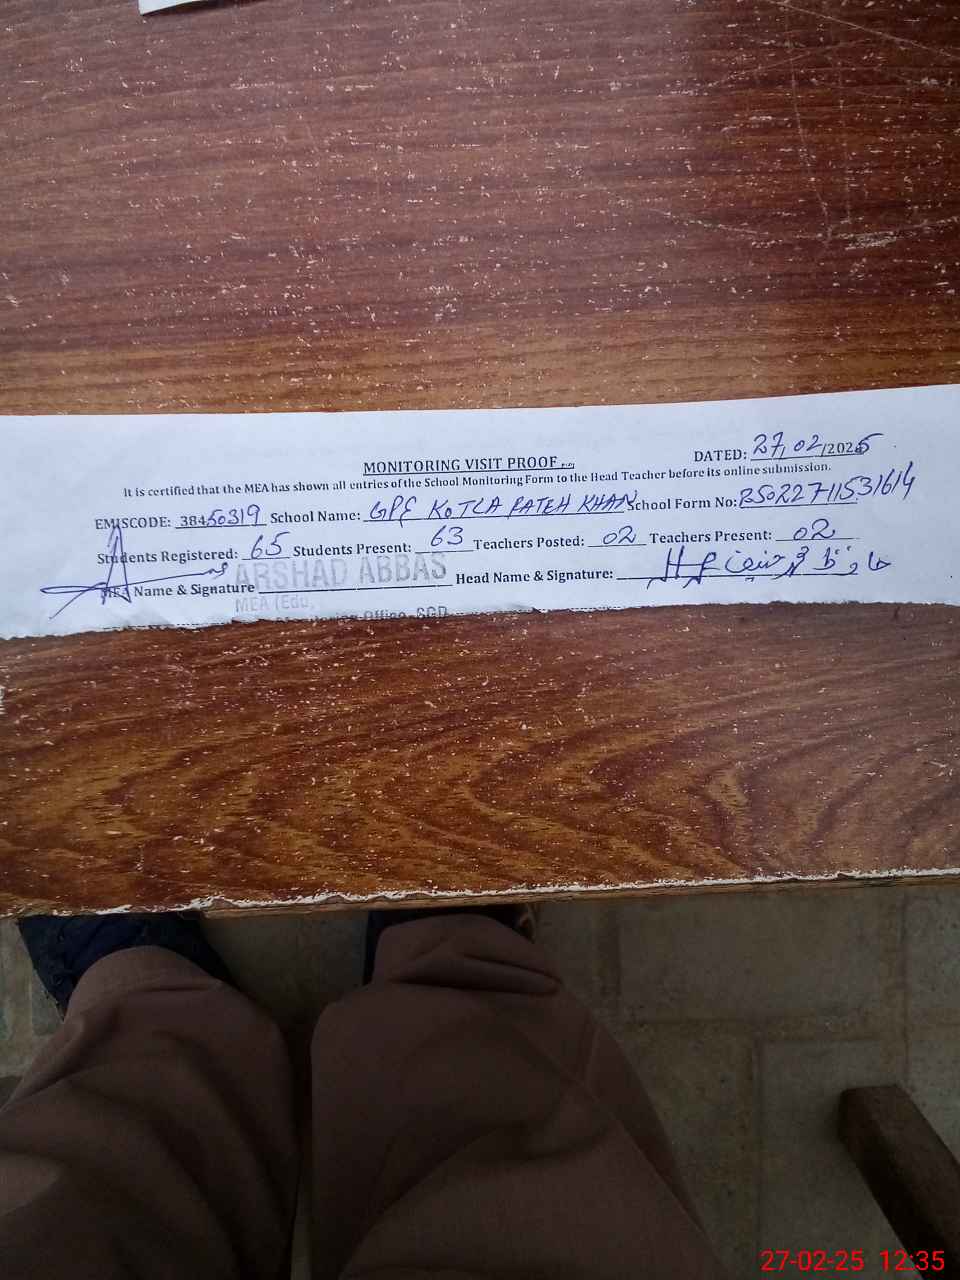 MONITORING VISIT PROOF
DATED: 27/02/2025
It is certified that the MEA has shown all entries of the School Monitoring Form to the Head Teacher before its online submission.
EMISCODE: 38450319 School Name: GPE KOTLA FATEH KHAN School Form No: 25022711531614
Students Registered: 65 Students Present: 63 Teachers Posted: 02 Teachers Present: 02
MEA Name & Signature ARSHAD ABBAS Head Name & Signature: حافظ محمد
MEA (Edu,
Office, SGD
27-02-25 12:35